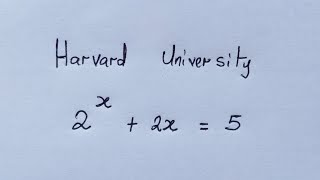 Harvard University
2^x + 2x = 5